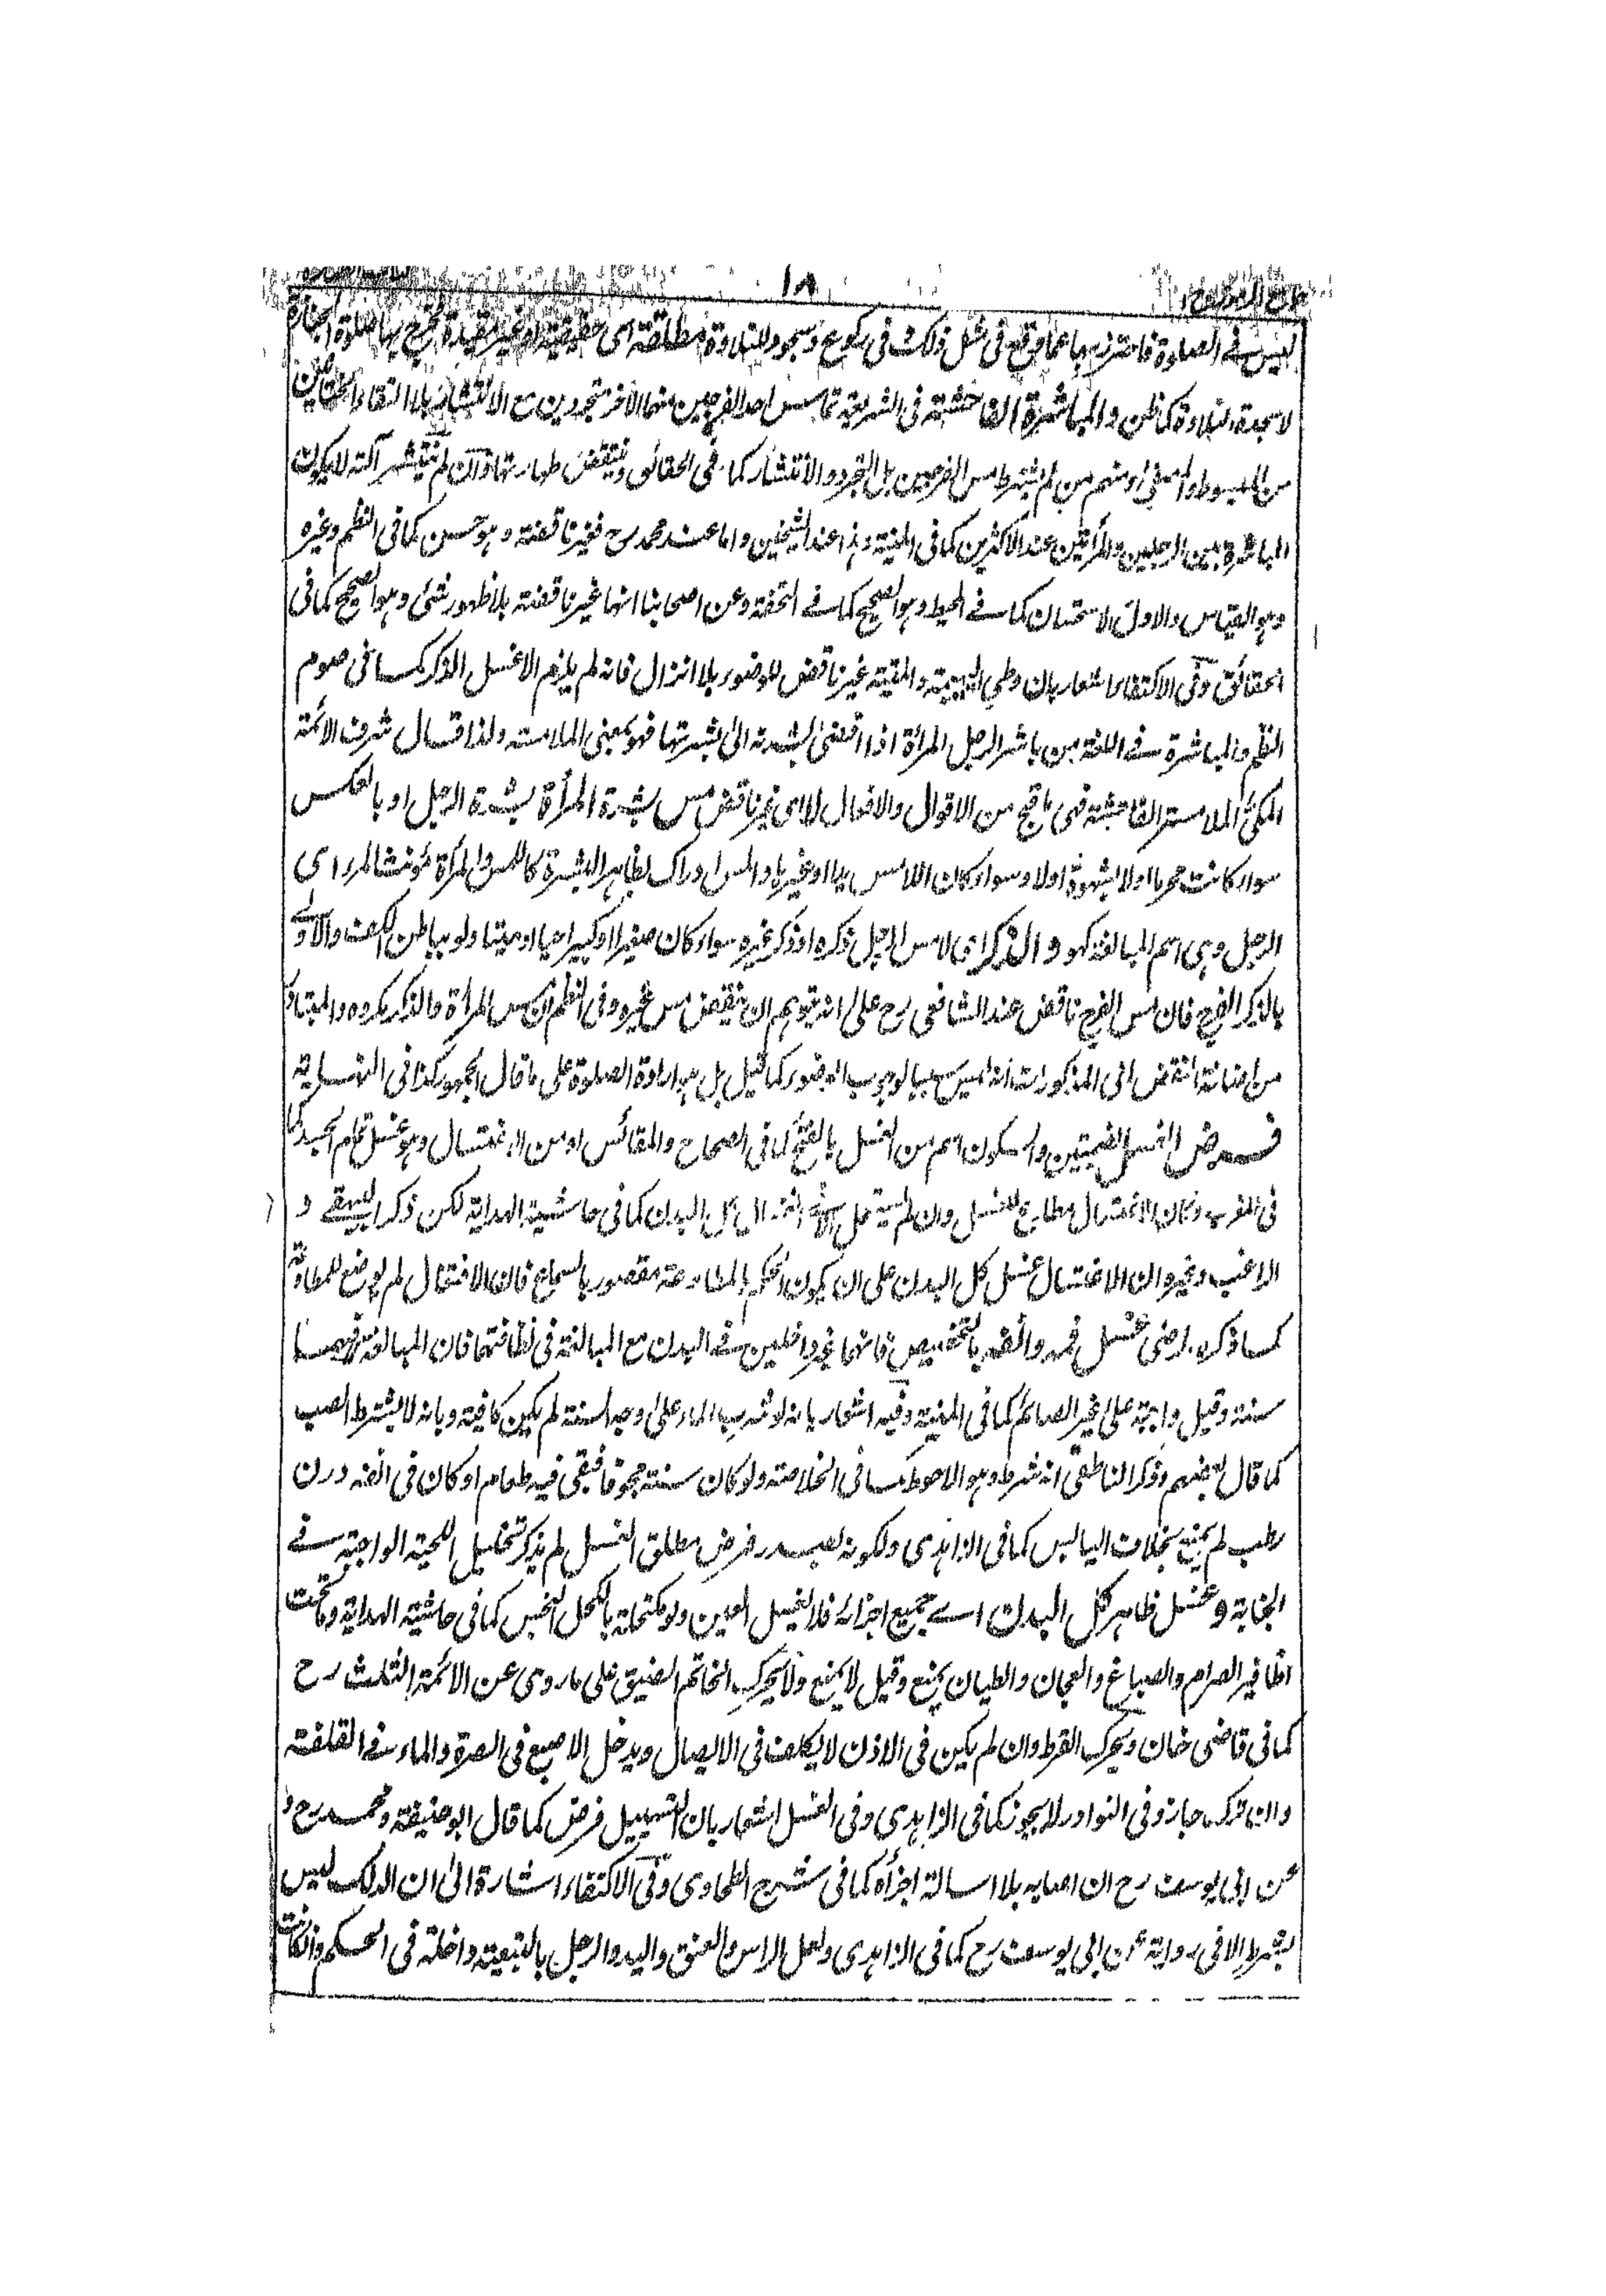 ١٨
جامع الرموز
ليس في الصلوة فاحترز بها عما وقع في مثل ذلك في ركوع وسجود للتلاوة مطلقة اى حقيقية او غير مقيدة فخرج بها صلوة الجنازة
لا سجدة التلاوة كما ظن والمباشرة الفاحشة فى الشريعة تماس احد الفرجين منهما الآخر متجردين مع الانتشار بلا التقاء الختانين
من المبسوط ومنهم من لم يشترط مس الفرجين بل التجرد والانتشار كما فى الحقائق وينتقض طهارتها وان لم ينتشر آلته لا يكون
المباشرة بين الرجلين والمرأتين عند الاكثرين كما فى المنية وهذا عند الشيخين واما عند محمد رح فغير ناقضة وهو حسن كما فى النظم وغيره
وهو القياس والاول الاستحسان كما فے المحيط وهو الصحيح كما فے التحفة وعن اصحابنا انها غير ناقضة بلا ظهور شئ وهو الصحيح كما فى
الحقائق وفى الاكتفاء اشعار بان وطى البهيمة والميتة غير ناقض للوضوء بلا انزال فانه لم يلزم الا غسل الذكر كما فى صوم
النظم والمباشرة فے اللغة من باشر الرجل المرأة اذا افضى بشرته الى بشرتها فهو بمعنى الملامسة ولذا قال شرف الائمة
المكى الملامسة الفاحشة فهى ما قبح من الاقوال والافعال لا اى غير ناقض مس بشرة المرأة بشرة الرجل او بالعكس
سواء كانت محرما اولا بشهوة اولا وسواء كان اللامس يدا او غيرها والمس ادراك لظاهر البشرة كاللمس والمرأة مؤنث المرء اى
الرجل وهى اسم للبالغة كهو والذكر اى لا مس الرجل ذكره او ذكر غيره سواء كان صغيرا او كبيرا حيا او ميتا ولو بباطن الكف والاولے
بالذكر الفرج فان مس الفرج ناقض عند الشافعى رح على انه يتوهم ان ينقض مس غيره وفى النظم ان مس المرأة والذكر مكروه والمتبادر
من اضافة النقض الى المذكورات انه ليس سببا لوجوب الوضوء كما قيل بل هو ارادة الصلوة على ما قال الجمهور كذا فى النهاية
فرض الغسل بضمتين والسكون اسم من الغسل بالفتح كما فى الصحاح والمقائس او من الاغتسال وهو غسل تمام الجسد كما
فى المغرب وكان الاغتسال مطاوع للغسل وان لم يستعمل الا فى كل البدن كما فى حاشية الهداية لكن ذكر البيهقے و
الراغب وغيره ان الاغتسال غسل كل البدن على ان يكون الحكم بالمطاوعة مقصور بالسماع فان الافتعال لم يوضع للمطاوعة
كما ذكره الرضى غسل فمه وانفه بالتخصيص فانهما غير داخلين فے البدن مع المبالغة فى نظافتهما فان المبالغة فيهما
سنة وقيل واجبة على غير الصائم كما فى المنية وفيه اشعار بانه لو شرب الماء على وجه السنة لم يكن كافية وبانه لا يشترط الصب
كما قال بعضهم وذكر الناطفى انه شرط وهو الاحوط كما فى الخلاصة ولو كان سنة مجوفا فبقى فيه طعام او كان فى انفه درن
رطب لم يمنع بخلاف اليابس كما فى الزاهدى ولكونه بصدد فرض مطلق الغسل لم يذكر تخليل اللحية الواجبة فے
الجنابة وغسل ظاهر كل البدن اے جميع اجزائه فلا يغسل العين ولو مكتحلة بالكحل النجس كما فى حاشية الهداية وتحت
اظافير الصرام والصباغ والعجان والطيان يمنع وقيل لا يمنع ولا يحرك الخاتم الضيق على ما روى عن الائمة الثلث رح
كما فى قاضى خان ويحرك القرط وان لم يكن فى الاذن لا يكلف فى الايصال ويدخل الاصبع فى السرة والماء فے القلفة
وان ترك جاز وفى النوادر لا يجوز كما فى الزاهدى وفى الغسل اشعار بان التسييل فرض كما قال ابو حنيفة ومحمد رح و
عن ابى يوسف رح ان اصابه بلا اسالة اجزأه كما فى شرح الطحاوى وفى الاكتفاء اشارة الى ان الدلك ليس
بشرط الا فى رواية عن ابى يوسف رح كما فى الزاهدى ولعل الراس والعنق واليد والرجل بالتبعية داخلة فى الحكم وان كانت